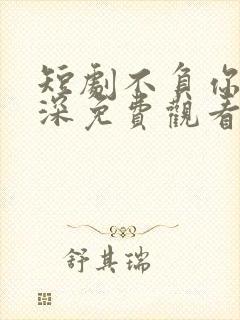 短劇不負你
深免費觀看
舒其瑞